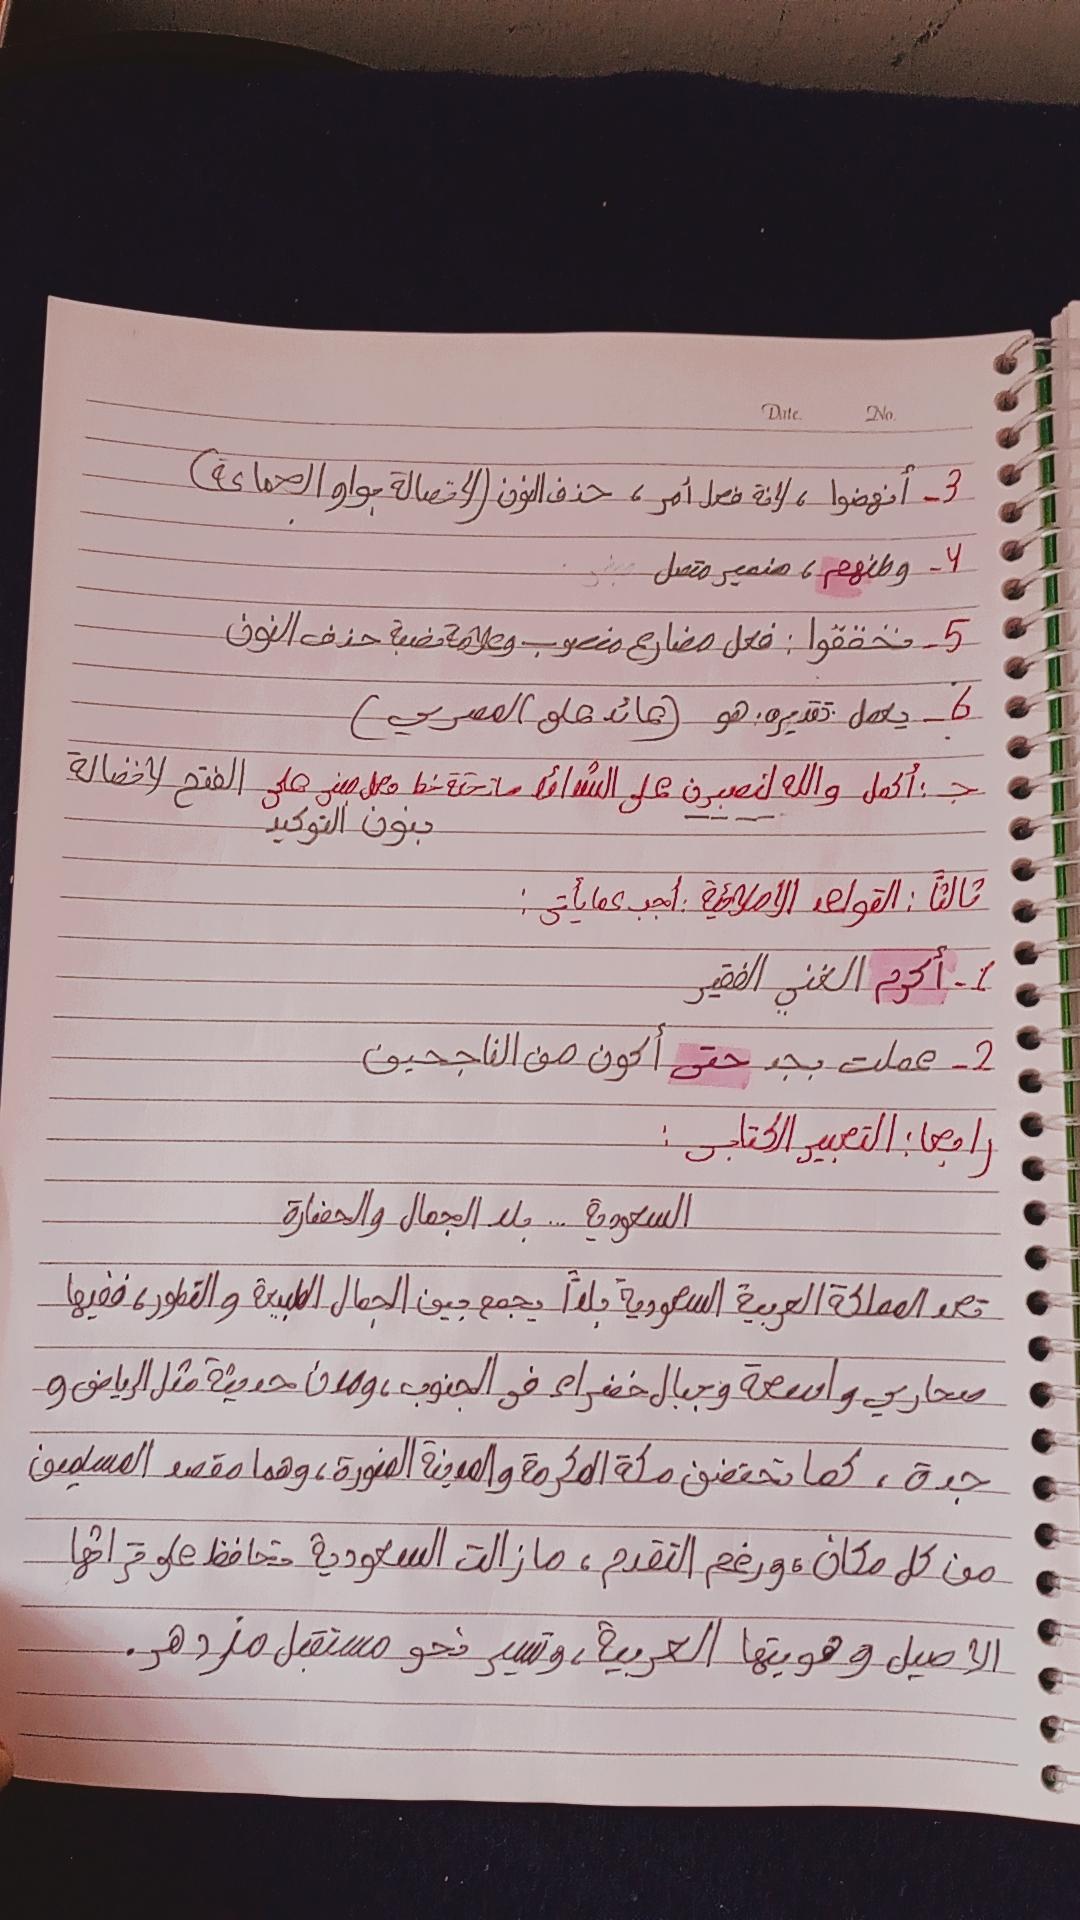 Date. No.
3- أنهضوا ، لانة فعل أمر ، حذف النون (لاتصالة بواو الجماعة)
4- وطنهم ، ضمير متصل
5- نخققوا : فعل مضارع منصوب وعلامة نصبة حذف النون
6- يعمل : تقديره: هو (عائد على المصري)
جـ : أكمل والله لنصبرن على الشدائد ماتحتة خط فعل مبنى على الفتح لاتصالة
بنون التوكيد
ثالثاً : القواعد الإملائية : أجب عما يأتى :
1- أكرم الغني الفقير
2- عملت بجد حتى أكون من الناجحين
رابعا : التعبير الكتابى :
السعودية ... بلد الجمال والحضارة
تعد المملكة العربية السعودية بلداً يجمع بين الجمال الطبيعة والتطور، ففيها
صحاري واسعة وجبال خضراء في الجنوب ، ومدن حديثة مثل الرياض و
جدة ، كما تحتضن مكة المكرمة والمدينة المنورة ، وهما مقصد المسلمين
من كل مكان ، ورغم التقدم ، مازالت السعودية تحافظ على تراثها
الاصيل وهويتها العربية ، وتسير نحو مستقبل مزدهر .